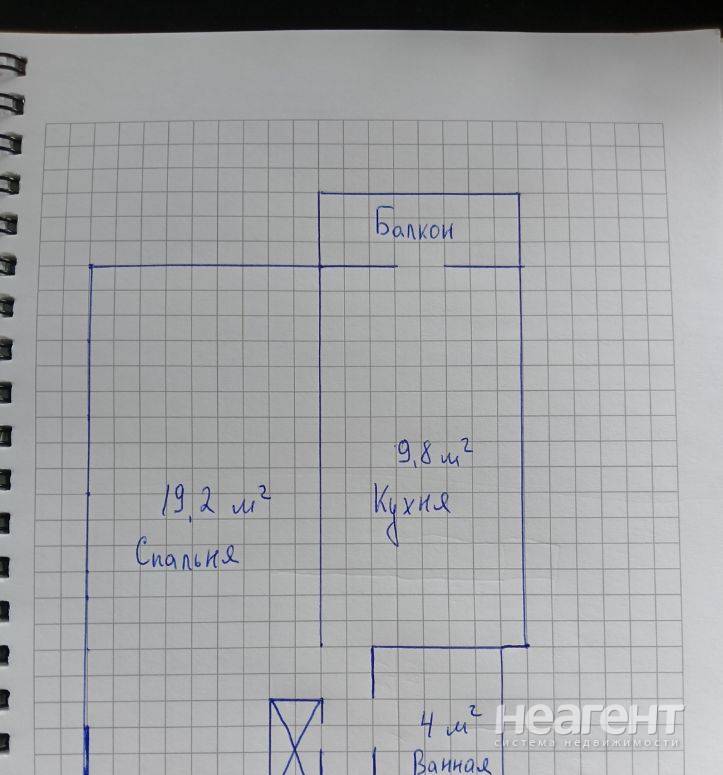 Балкон
9,8 м²
Кухня
19,2 м²
Спальня
4 м²
Ванная
неагент
система недвижимости